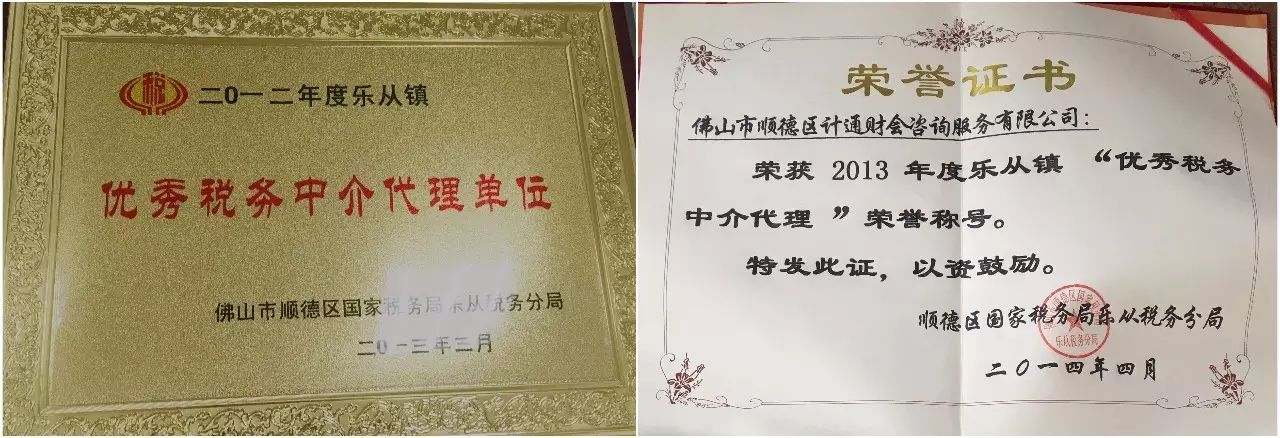 税
二0一二年度乐从镇
优秀税务中介代理单位
佛山市顺德区国家税务局乐从税务分局
二0一三年三月
荣誉证书
佛山市顺德区计通财会咨询服务有限公司:
荣获 2013 年度乐从镇 “优秀税务
中介代理 ”荣誉称号。
特发此证，以资鼓励。
顺德区国家税务局乐从税务分局
乐从税务分局
二0一四年四月